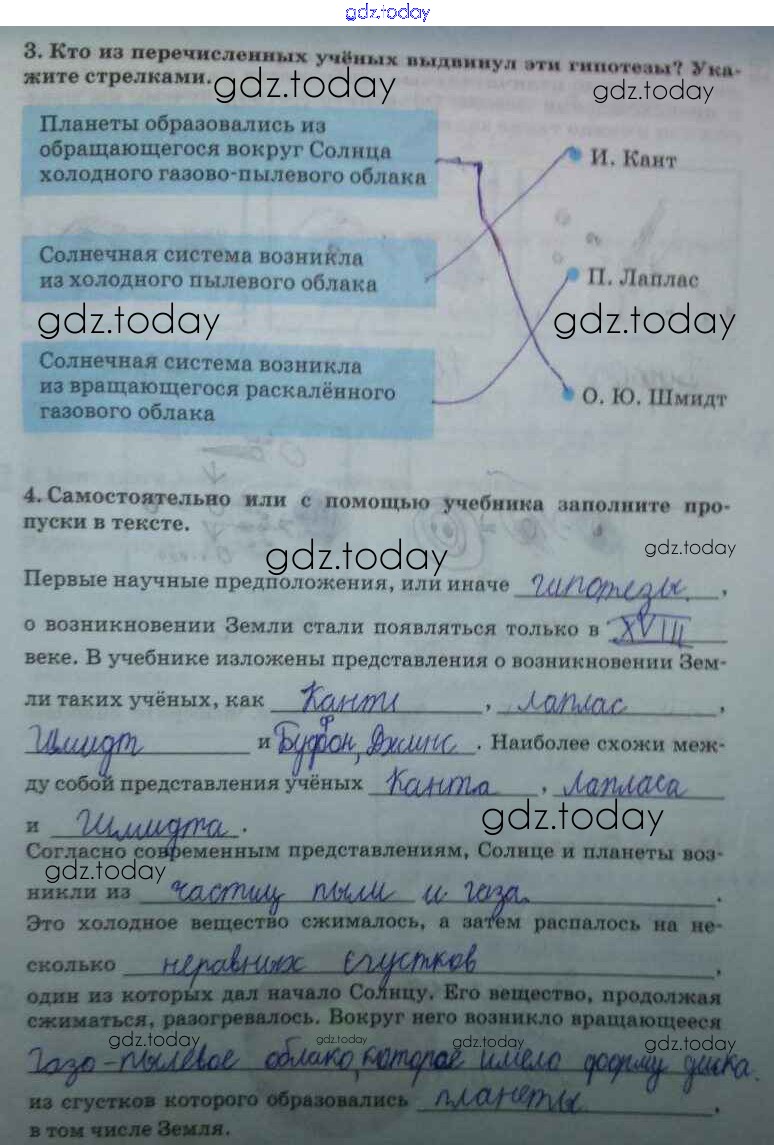 gdz.today
3. Кто из перечисленных учёных выдвинул эти гипотезы? Ука-
жите стрелками.
gdz.today
gdz.today
Планеты образовались из
обращающегося вокруг Солнца
холодного газово-пылевого облака
И. Кант
Солнечная система возникла
из холодного пылевого облака
П. Лаплас
gdz.today
gdz.today
Солнечная система возникла
из вращающегося раскалённого
газового облака
О. Ю. Шмидт
4. Самостоятельно или с помощью учебника заполните про-
пуски в тексте.
gdz.today
gdz.today
Первые научные предположения, или иначе гипотезы,
о возникновении Земли стали появляться только в XVIII
веке. В учебнике изложены представления о возникновении Зем-
ли таких учёных, как Кант, Лаплас,
Шмидт и Бюффон, Джинс. Наиболее схожи меж-
ду собой представления учёных Канта, Лапласа
и Шмидта.
gdz.today
Согласно современным представлениям, Солнце и планеты воз-
gdz.today
никли из частиц пыли и газа.
Это холодное вещество сжималось, а затем распалось на не-
сколько неравных сгустков,
один из которых дал начало Солнцу. Его вещество, продолжая
сжиматься, разогревалось. Вокруг него возникло вращающееся
gdz.today
gdz.today
gdz.today
газо-пылевое облако, которое имело форму диска.
из сгустков которого образовались планеты,
в том числе Земля.